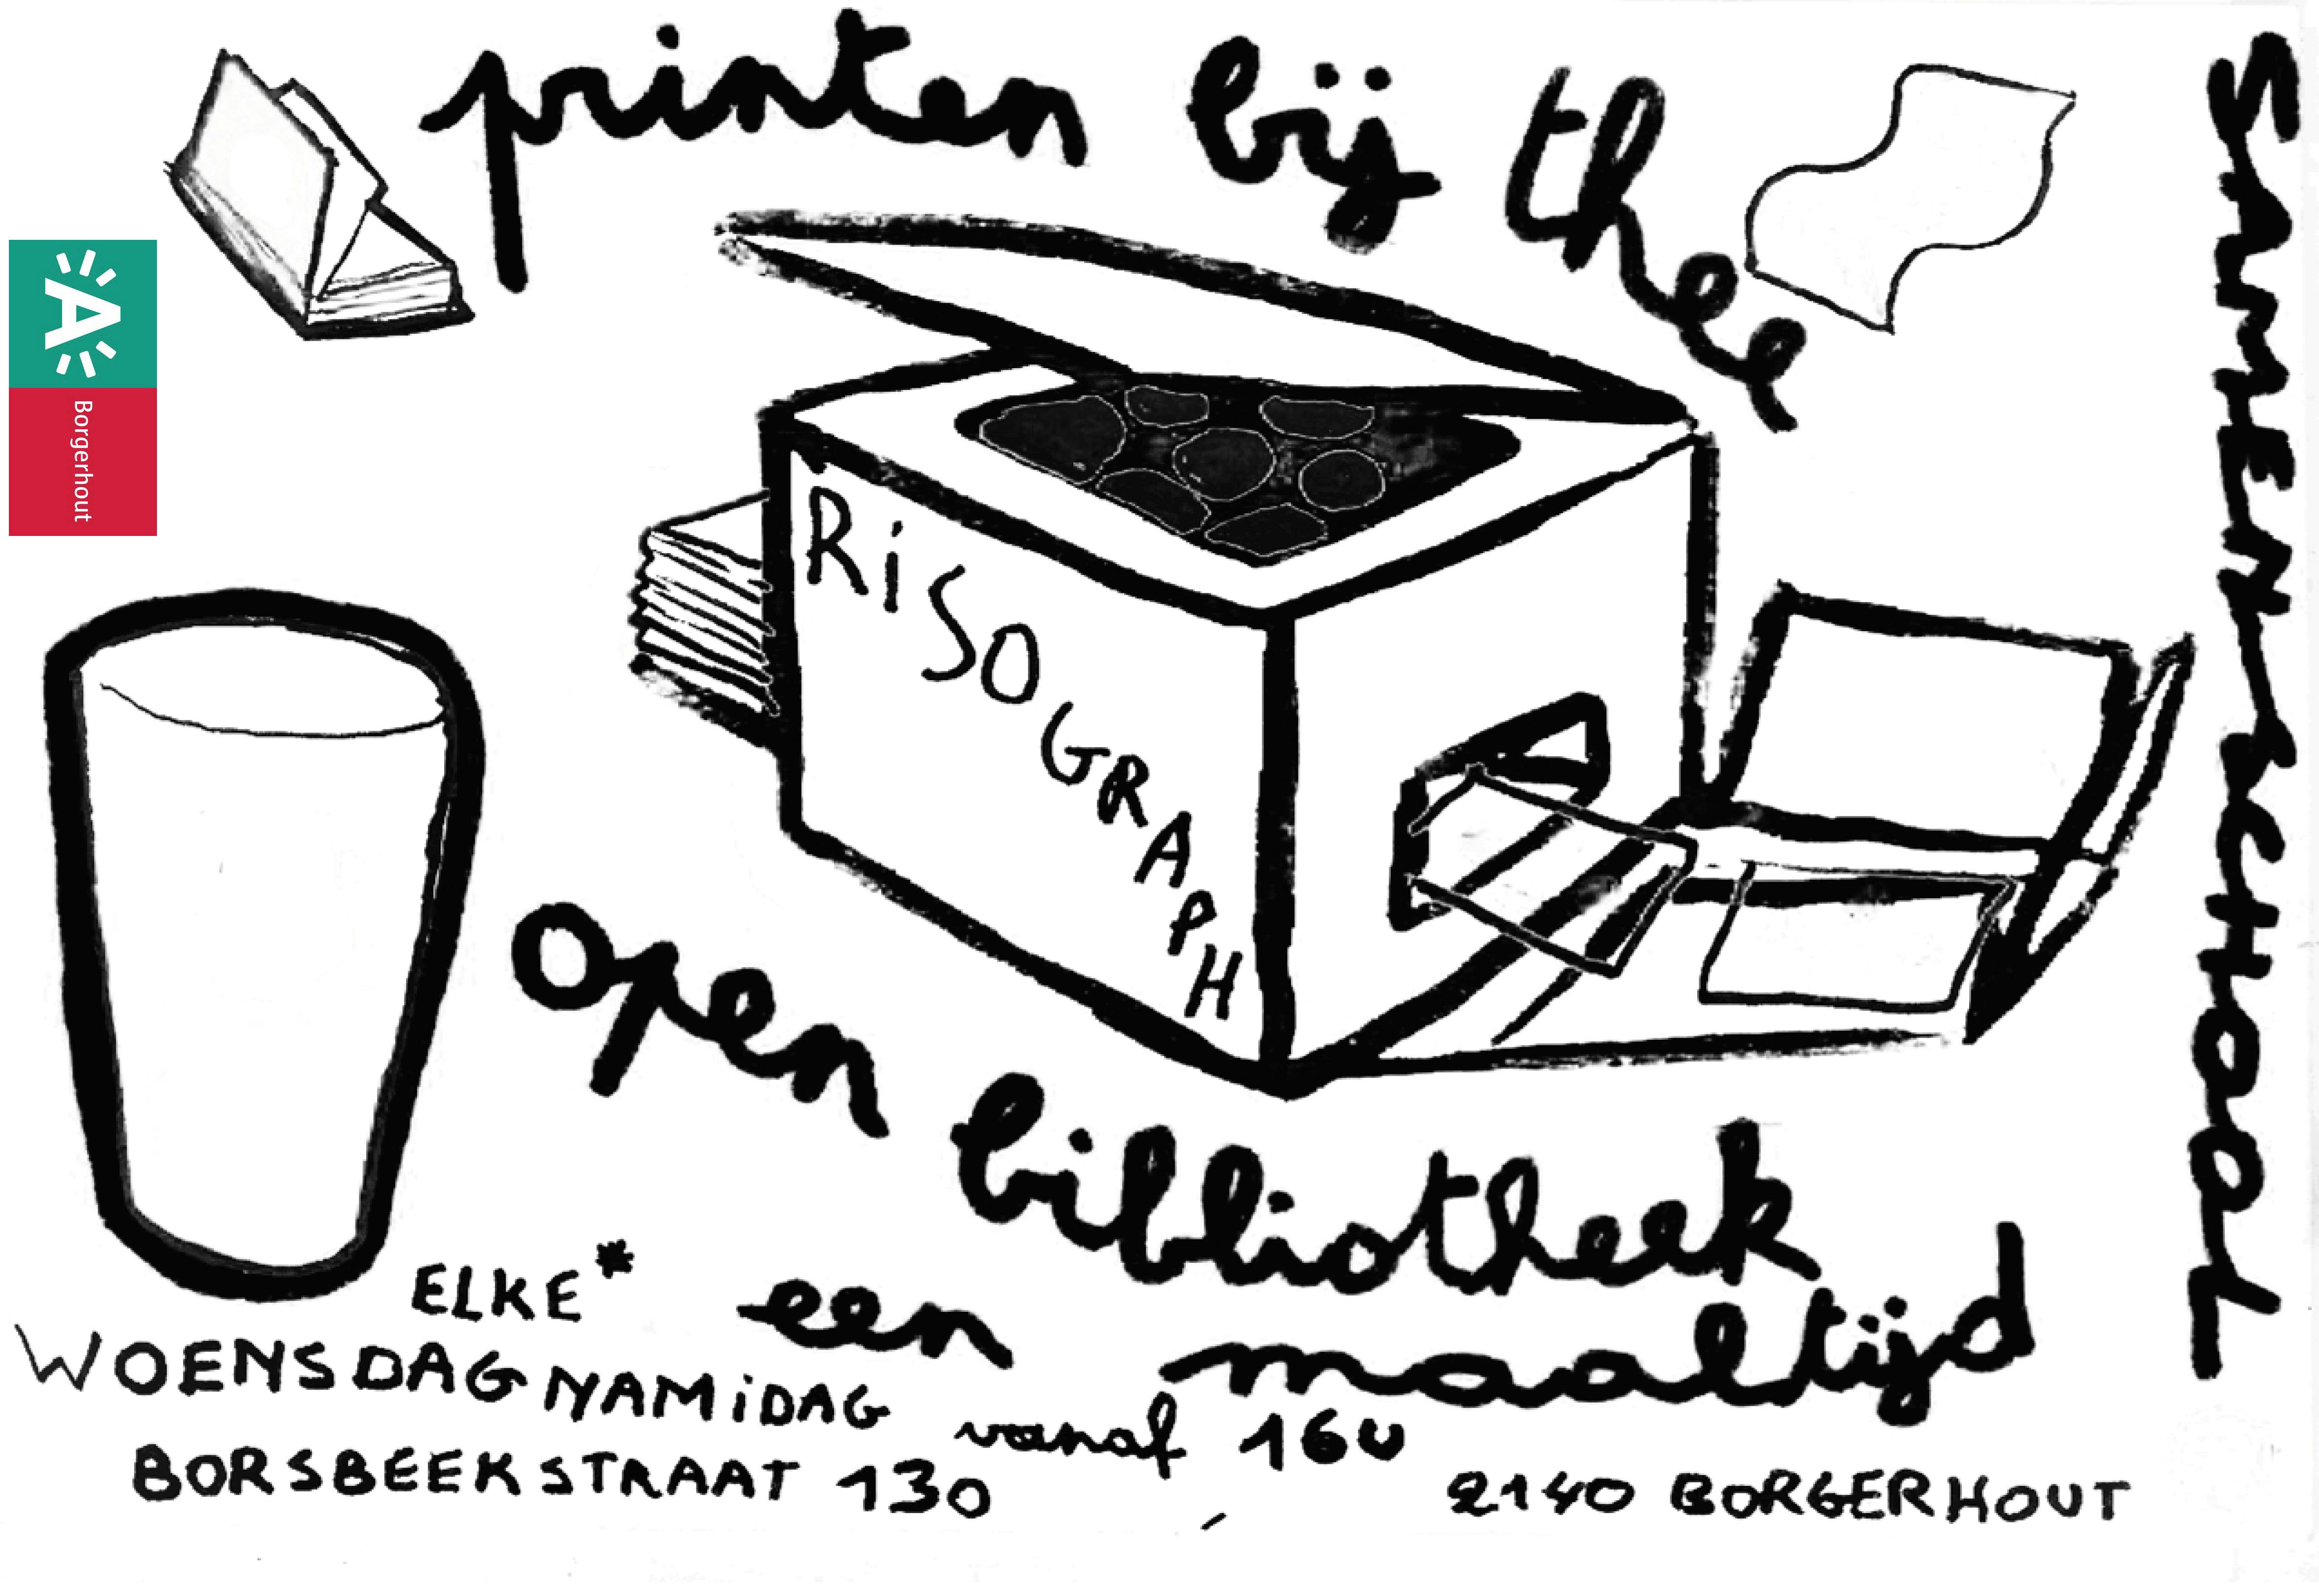 printen bij thee
SAMENSCHOOL
A
Borgerhout
RiSOGRAPH
open bibliotheek
een maaltijd
ELKE*
WOENSDAGNAMiDAG
vanaf 16U
BORSBEEKSTRAAT 130 , 2140 BORGERHOUT